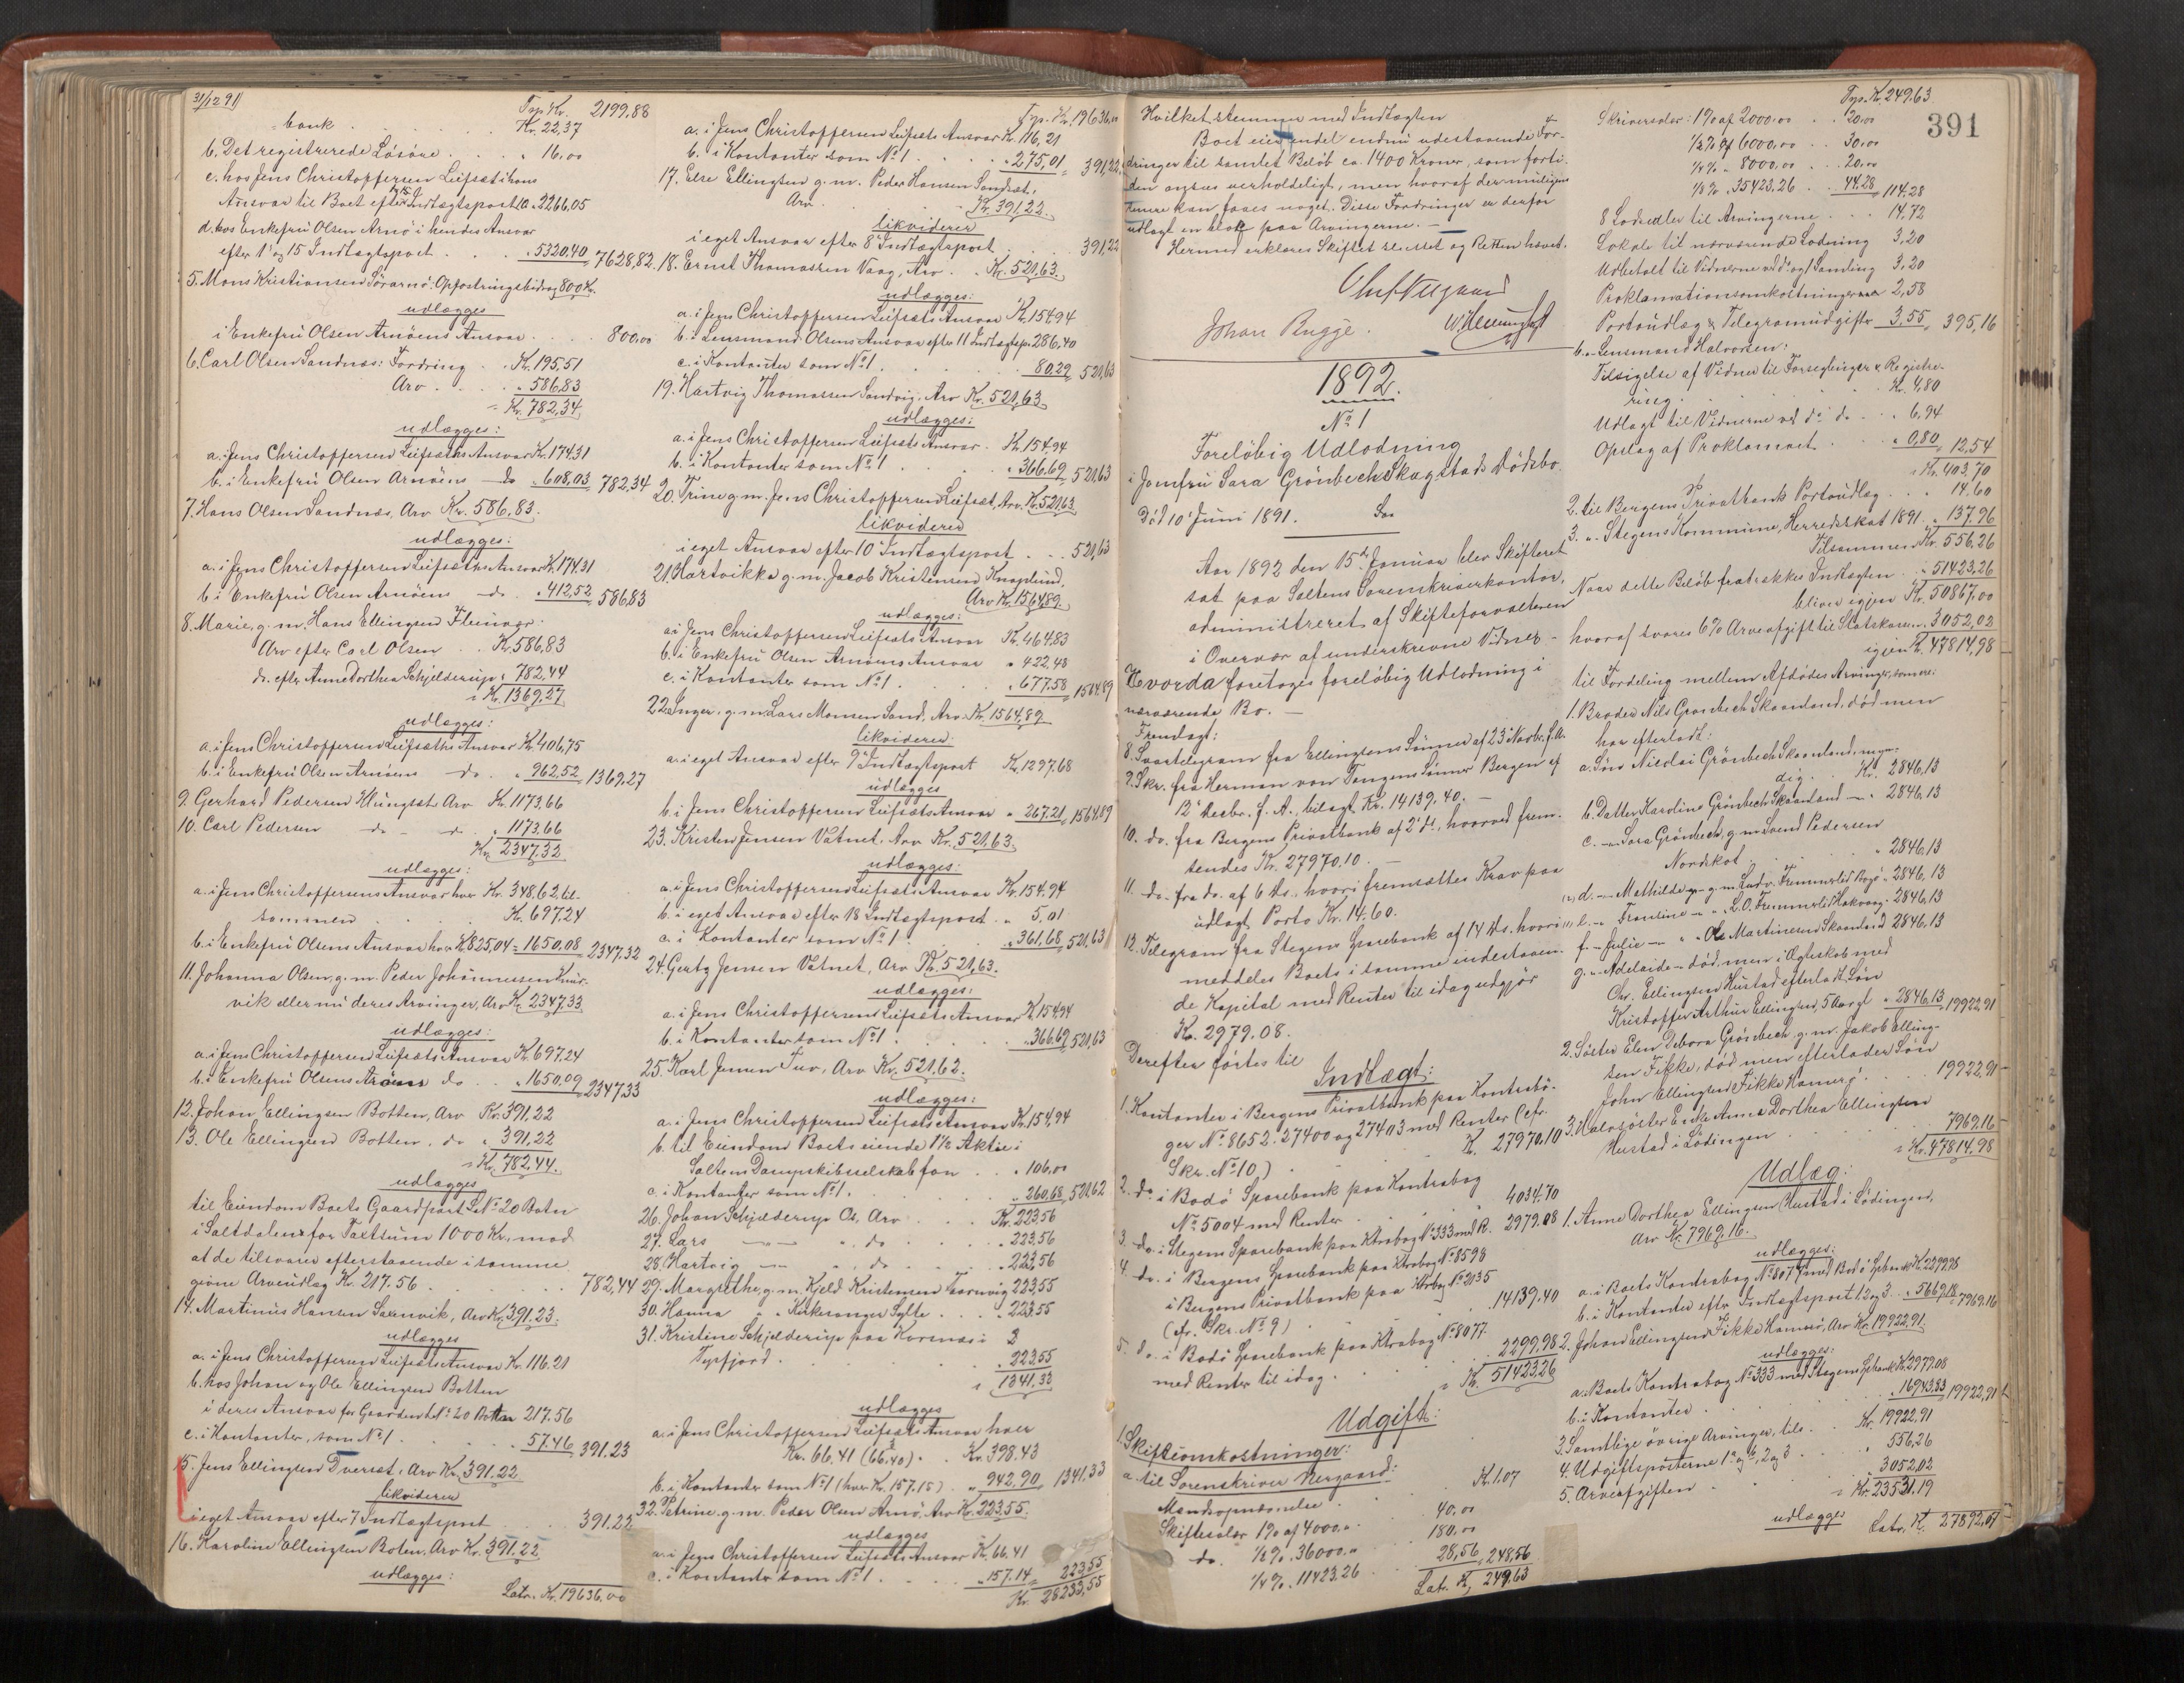 31/12 91
Tsp. Kr. 2199.88
bank . . . . . Kr. 22,37
b. Det registrerede Løsøre . . . " 16,00
c. hos Jens Christoffersen Leifset i hans
Ansvar til Boet efter Indtægtspost 12 a. 2266,05
d. hos Enkefru Olsen Arnø i hendes Ansvar
efter 1' og 15 Indtægtspost . . . " 5320.40 7628,82
5. Mons Kristiansen Sörarnö: Opfostringsbidrag 800 Kr.
udlægges
i Enkefru Olsen Arnøens Ansvar . . . 800,00
6. Carl Olsen Sandnæs: Fordring . . Kr. 195,51
Arv . . . " 586,83
= Kr. 782,34
udlægges:
a. i Jens Christoffersen Leifseths Ansvar Kr. 174.31
b. i Enkefru Olsen Arnöens — Do " 608,03 782,34
7. Hans Olsen Sandnæs, Arv Kr. 586,83.
udlægges:
a. i Jens Christoffersen Leifseths Ansvar Kr. 174.31
b. i Enkefru Olsen Arnöens — do. " 412,52 586,83
8. Marie, g. m. Hans Ellingsen Fleinvær:
Arv efter Carl Olsen . . Kr. 586,83
do. efter Anne Dorthea Schjelderup " 782,44
= Kr. 1369.27
udlægges:
a. i Jens Christoffersen Leifseths Ansvar Kr. 406,75
b. i Enkefru Olsen Arnöens — do. " 962,52 1369,27
9. Gerhard Pedersen Klüngset. Arv Kr. 1173.66
10. Carl Pedersen — do — d. " 1173.66
Kr. 2347.32
udlægges:
a. i Jens Christoffersens Ansvar hver Kr. 348,62, til-
sammen . . . Kr. 697,24
b. i Enkefru Olsens Ansvar hver K. 825,04 = 1650,08 2347.32
11. Johanna Olsen, g. m. Peder Johannessen
vik eller nu deres Arvinger, Arv Kr. 2347.33
udlægges:
a. i Jens Christoffersen Leifsets Ansvar Kr. 697,24
b. i Enkefru Olsens Arnöens do . . " 1650,09 2347.33
12. Johan Ellingsen Botten, Arv Kr. 391,22
13. Ole Ellingsen Botten, do " 391,22
= Kr. 782,44.
udlægges
til Eiendom Boets Gaardpart L. No 20 Botn
i Saltdalen for Taxtsum 1000 Kr. mod
at de tilsvare efterstaaende i samme
givne Arveudlag Kr. 217.56 . . . 782,44
14. Martinus Hansen Saxenvik, Arv Kr. 391.23.
udlægges
a. i Jens Christoffersen Leifsets Ansvar Kr. 116.21
b. hos Johan og Ole Ellingsen Botten
i deres Ansvar for Gaarden L. No 20 Botten 217.56
c. i Kontanter, som No 1 . . . " 57.46 391.23
15. Jens Ellingsen Tverset, Arv Kr. 391.22
likviderer
i eget Ansvar efter 7 Indtægtspost . . . 391.22
16. Karoline Ellingsen Boten, Arv Kr. 391.22
udlægges:
Latr. Kr. 19636,00
Tsp. Kr. 19636,00
a. i Jens Christoffersen Leifsets Ansvar Kr. 116,21
b. i Kontanter som No 1 . . . " 275,01 = 391,22
17. Else Ellingsen g. m. Peder Hansen Sandset,
Arv . . . Kr. 391,22.
likviderer
i eget Ansvar efter 8 Indtægtspost . . . 391,22
18. Ernst Thomassen Vaag, Arv . . Kr. 521,63.
udlægges:
a. i Jens Christoffersen Leifsets Ansvar Kr. 154.94
b. i Lensmand Olsens Ansvar efter 11 Indtægtsp. 286,40
c. i Kontanter som No 1 . . . 80,29 521,63
19. Hartvig Thomassen Sandvig. Arv Kr. 521,63
udlægges:
a. i Jens Christoffersen Leifsets Ansvar . Kr. 154,94
b. i Kontanter som No 1 . . . " 366,69 521,63
20. Trine g. m. Jens Christoffersen Leifset, Arv. Kr. 521.63
likviderer
i eget Ansvar efter 10 Indtægtspost . . . 521,63
21. Hartvikka g. m. Jacob Kristensen Knaplund,
Arv Kr. 1564,89.
udlægges:
a. i Jens Christoffersen Leifsets Ansvar Kr. 464,83
b. i Enkefru Olsen Arnøens Ansvar " 422,48
c. i Kontanter som No 1 . . . " 677.58 1564,89
22. Inger. g. m. Lars Monsen Sand. Arv. Kr. 1564,89
likviderer.
a. i eget Ansvar efter 9 Indtægtspost Kr. 1297.68
udlægges
b. i Jens Christoffersen Leifsets Ansvar " 267.21 = 1564,89
23. Kristen Jensen Vatnet, Arv Kr. 521,63.
udlægges:
a. i Jens Christoffersen Leifsets Ansvar Kr. 154.94
b. i eget Ansvar efter 18 Indtægtspost . . " 5,01
c. i Kontanter som No 1 . . . " 361,68 521,63
24. Gertz Jensen Vatnet, Arv Kr. 521,63.
udlægges:
a. i Jens Christoffersens Leifsets Ansvar Kr. 154,94
b. i Kontanter som No 1 . . . " 366,69 521,63
25. Karl Jensen Tuv, Arv Kr. 521,62.
udlægges:
a. i Jens Christoffersen Leifsets Ansvar Kr. 154,94
b. til Eiendom Boets eiende 1 1/2 Aktie i
Saltens Dampskibsselskab for . . " 106,00
c. i Kontanter som No 1. . . . " 260,68 521,62
26. Johan Schjelderup Os, Arv . . . Kr. 223,56
27. Lars — — " do . . . " 223.56
28. Hartvig — — " do . . . " 223,56
29. Margrethe, g. m. Kjeld Kristensen 223,55
30. Hanna " " Sylte . . . " 223.55
31. Kristine Schjelderup paa Korsnæs i
Tysfjord . . . " 223.55
= 1341.33
udlægges
a. i Jens Christoffersen Leifsets Ansvar hver
Kr. 66.41 (66.40) . . Kr. 398.43
b. i Kontanter som No 1 (hver Kr. 157.15) . " 942,90 1341.33
32. Petrine, g. m. Peder Olsen Arnø, Arv Kr. 223.55.
udlægges
a. i Jens Christoffersen Leifsets Ansvar Kr. 66.41
c. i Kontanter som No 1 . . . " 157.14 = 223,55
Kr. 28233,55
Hvilket stemmer med Indtægten
Boet eier endel endnu udestaaende For-
dringer til samlet Beløb ca. 1400 Kroner, som forti-
den ansees uerholdeligt, men hvoraf der muligens
senere kan faaes noget. Disse Fordringer er derfor
udlagt en blok paa Arvingerne. —
Hermed erklæres Skiftet sluttet og Retten hævet.
Johan Bugge.
1892.
No 1
Foreløbig Udlodning
i Jomfru Sara Grönbech Skagstads Dödsbo.
Död 10 Juni 1891.
Aar 1892 den 15de Januar blev Skifteret
sat paa Saltens Sorenskriverkontor,
administreret af Skifteforvalteren
i Overvær af underskrevne Vidner —
Hvorda foretoges foreløbig Udlodning i
nærværende Bo. —
Fremlagt:
8. Svartelegram fra Ellingsens Sønner af 23 Novbr. f. A.
9. Skr. fra Herman von Tangens Sönner Bergen af
12 Desbr. f. A., bilagt Kr. 14139.40. —
10. do. fra Bergens Privatbank af 2' ds., hvorved frem-
sendes Kr. 27970.10. —
11. do. fra do. af 6 ds., hvori fremsættes Krav paa
udlagt Porto Kr. 14.60.
12. Telegram fra Stegens Sparebank af 14 ds. hvori
meddeles Boets i samme indestaaen-
de Kapital med Renter til idag udgjør
Kr. 2979.08.
Derefter førtes til
Indtægt:
1. Kontanter i Bergens Privatbank paa Kontrabö-
ger No 8652. 27400 og 27403 med Renter (cfr.
Skr. No 10) . . . K. 27970.10
2. do. i Bodö Sparebank paa Kontrabog
No 5004 med Renter . . . 4034.70
3. do. i Stegens Sparebank paa Ktrabog No 333 med R. 2979.08
4. do. i Bergens Sparebank paa Ktrabog No 8598
i Bergens Privatbank paa Ktrabog No 2135
(cfr. Skr. No 9) . . . 14139.40
5. do. i Bodö Sparebank paa Ktrabog No 8077.
med Renter til idag . . . 2299,98
= Kr. 51423,26
Udgift:
1. Skifteomkostninger:
a. til Sorenskriver Neergaard:
Mandsopnævnelse . . . K. 1,07
Skiftesalær 1% af 4000 " . . . 40,00
do. 1/2% . 36000 " . . 180,00
1/4% . 11423.26 . . 28,56 = 248,56
Lat. K. 249,63
391
Tsp. Kr. 249.63
Skriversalær: 1% af 2000,00 . . 20,00
1/2% af 6000,00 . . 30,00
1/4% " 8000,00 . . 20,00
1/8% . 35423.26 . . 44.28 = 114.28
8 Lodsedler til Arvingerne . . . 14,72
Lokale til nærværende Lodning 3,20
Udbetalt til Vidnerne ved d. og 1 Samling 3,20
Proklamationsomkostningerne 2,58
Portoudlæg & Telegramudgifter 3,55 = 395,16
b. " Lensmand Halvorsen:
Tilsigelse af Vidner til Forseglinger & Registre-
ring . . . Kr. 4,80
Udlagt til Vidnerne ved do. do. . . 6,94
Opslag af Proklamaet . . . " 0,80 = 12,54
= Kr. 403,70
2. til Bergens Privatbank Portoudlæg . . . 14,60
3. " Stegens Kommune, Herredsskat 1891 " 137.96
Tilsammen Kr. 556,26
Naar dette Beløb fratrækkes Indtægten . " 51423,26
bliver igjen Kr. 50867,00
hvoraf svares 6% Arveafgift til Statskassen " 3052,02
igjen K. 47814,98
til Fordeling mellem Afdødes Arvinger, som ere:
1. Broder Nils Gronbech Skaanland, død men
har efterladt:
a. Sön Nicolai Grönbech Skaanland, myn-
dig . . Kr. 2846,13
b. Datter Karoline Grönbech Skaanland — " 2846,13
c. — " Sara Grönbech, g. m. Svend Pedersen
Nordskot . . . " 2846,13
d. — Mathilde — g. m. Ludv. Fremmerlid Bogö " 2846,13
e. — Frantine — " " L. O. Fremmerlid Hakvaag " 2846,13
f. — Julie — " " Ole Martinussen Skaanland 2846,13
g. — Adelaide — död, men i Ægteskab med
Chr. Ellingsen Hustad efterladt Søn
Kristoffer Arthur Ellingsen, 5 Aar gl. " 2846,13 = 19922,91
2. Söster Elen Debora Grönbech g. m. Jakob Elling-
sen Fikke, död men efterlader Søn
John Ellingsen Fikke Hamerø . . . 19922,91
3. Halvsøster Enke Anne Dorthea Ellingsen
Hustad i Lödingen . . . 7969,16
= Kr. 47814,98
Udlæg:
1. Anne Dorthea Ellingsen Hustad i Lödingen,
Arv Kr. 7969.16.
udlægges:
a. i Boets Kontrabog No 8077 med Bodö Spbank K. 2299,98
b. i Kontanter efter Indtægtspost 1, 2 og 3 . . 5669,18 = 7969.16
2. Johan Ellingsen Fikke Hamerö, Arv Kr. 19922.91.
udlægges:
a. Boets Kontrabog No 333 med Stegens Spbank K. 2979.08
b. i Kontanter . . . " 16943,83 = 19922,91
3. Samtlige övrige Arvinger, tils. . Kr. 19922,91
4. Udgiftsposterne 1 a og b, 2 og 3 . . 556,26
5. Arveafgiften . . . 3052,02
= Kr. 23531.19
udlægges
Latr. K. 27892,07